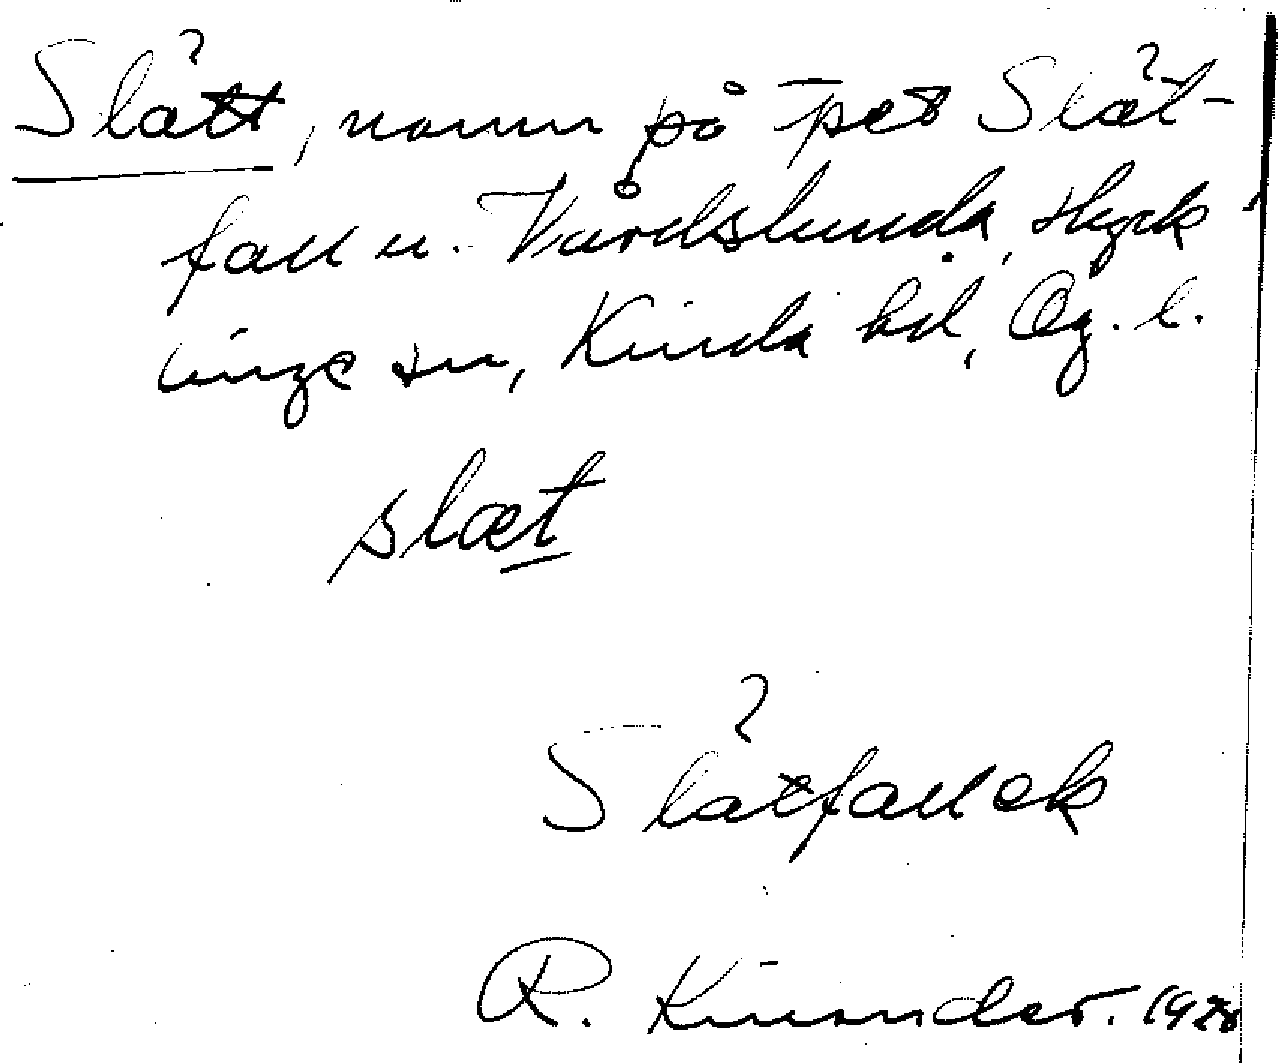 Slätt, namn på tpet Slät-
fall u. Vårdslunda, Hyck
inge sn, Kinda hd, Ög. l.
slæt
Slätfallek
R. Kinander. 1928